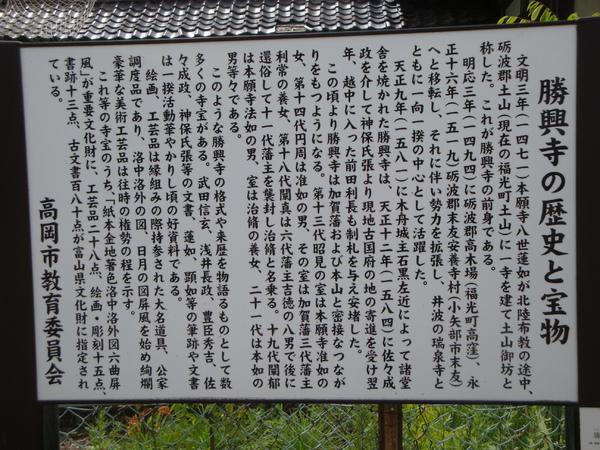 勝興寺の歴史と宝物
文明三年(一四七一)本願寺八世蓮如が北陸布教の途中、
砺波郡土山(現在の福光町土山)に一寺を建て土山御坊と
称した。これが勝興寺の前身である。
明応三年(一四九四)砺波郡高木場(福光町高窪)、永
正十六年(一五一九)砺波郡末友安養寺村(小矢部市末友)
へと移転し、それに伴い勢力を拡張し、井波の瑞泉寺と
ともに一向一揆の中心として活躍した。
天正九年(一五八一)に木舟城主石黒左近によって諸堂
舎を焼かれた勝興寺は、天正十二年(一五八四)に佐々成
政を介して神保氏張より現地古国府の地の寄進を受け翌
年、越中に入った前田利長も制札を与え安堵した。
この頃より勝興寺は加賀藩および本山と密接なつなが
りをもつようになる。第十三代昭見の室は本願寺准如の
女、第十四代円周は准如の男、その室は加賀藩三代藩主
利常の養女、第十八代闡真は六代藩主吉徳の八男で後に
還俗して十一代藩主を襲封し治脩と名乗る。十九代闡郁
は本願寺法如の男、室は治脩の養女、二十一代は本如の
男等々である。
このような勝興寺の格式や来歴を物語るものとして数
多くの寺宝がある。武田信玄、浅井長政、豊臣秀吉、佐
々成政、神保氏張等の文書、蓮如、顕如等の筆跡や文書
は一揆活動華やかりし頃の好資料である。
絵画、工芸品は縁組みの際持参された大名道具、公家
調度品であり、洛中洛外の図、日月の図屏風を始め絢爛
豪華な美術工芸品は往時の権勢の程を示す。
これ等の寺宝のうち、「紙本金地著色洛中洛外図六曲屏
風」が重要文化財に、工芸品二十八点、絵画・彫刻十五点、
書跡十三点、古文書百八十点が富山県文化財に指定され
ている。
高岡市教育委員会